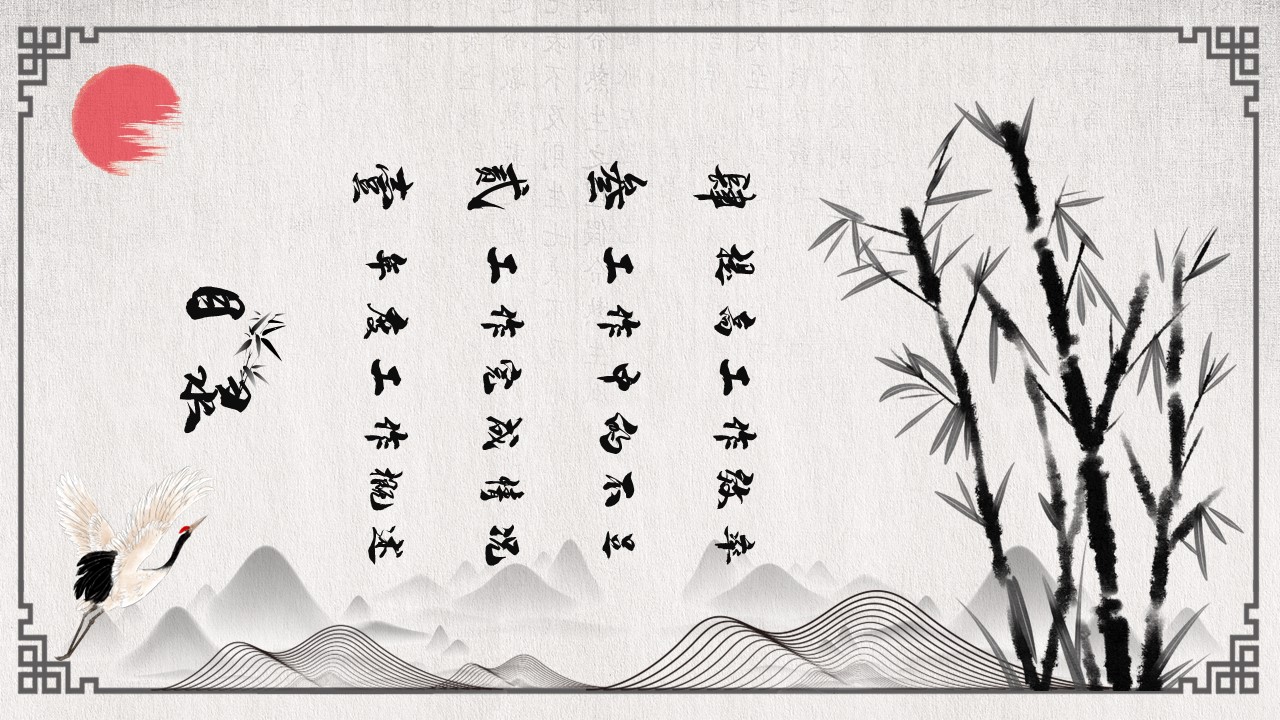 目录
壹 年度工作概述
贰 工作完成情况
叁 工作中的不足
肆 提高工作效率